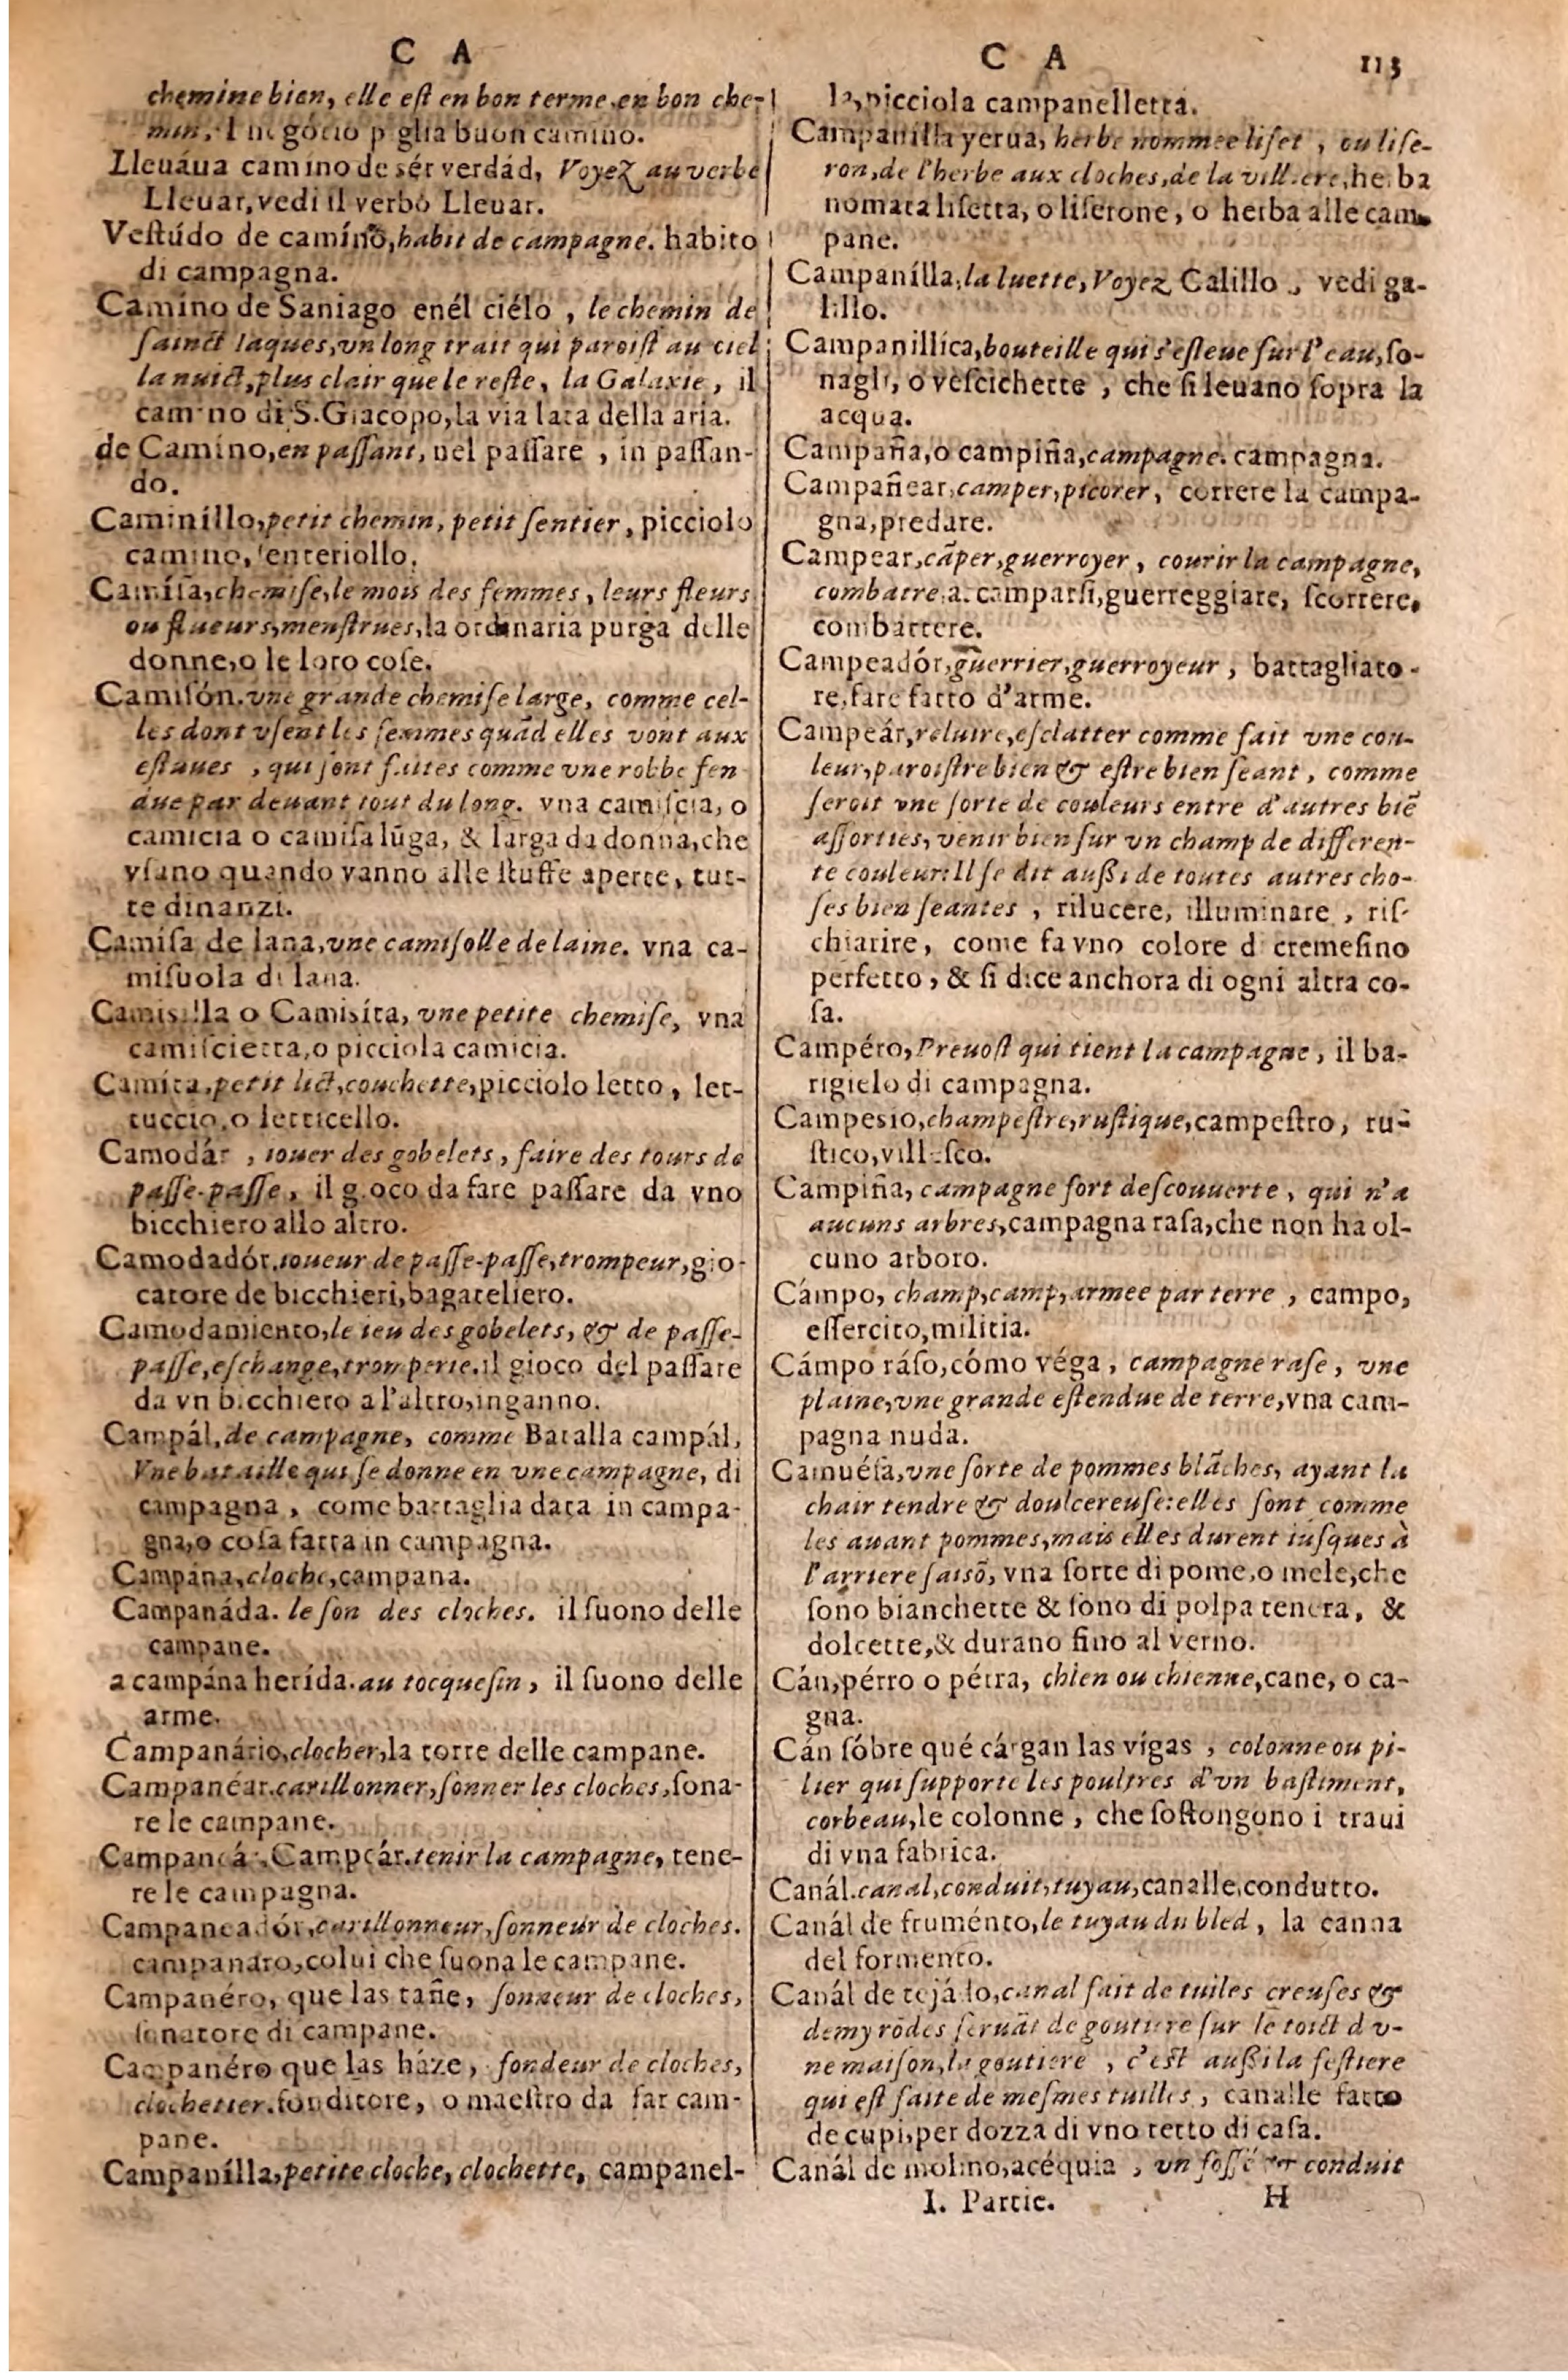 C A
chemine bien, elle eſt en bon terme, en bon che-
min, buon camíno.
Lleuáua camino de sér verdád, Voyez au verbe
Lleuar, vedi il verbo Lleuar.
Veſtído de camíno, habit de campagne. habito
di campagna.
Camino de Saniago enél ciélo, le chemin de
ſainct Iaques, vn long trait qui paroiſt au ciel
la nuict, plus clair que le reſte, la Galaxie, il
camino di S. Giacopo, la via lata della aria.
de Camino, en paſſant, nel paſſare, in paſſan-
do.
Caminíllo, petit chemin, petit ſentier, picciolo
camino, ſenteriollo.
Camíſa, chemiſe, le mois des femmes, leurs fleurs
ou flueurs, menſtrues, la ordinaria purga delle
donne, o le loro coſe.
Camiſón. vne grande chemiſe large, comme cel-
les dont vſent les femmes quãd elles vont aux
eſtuues, qui ſont faites comme vne robbe fen-
due par deuant tout du long. vna camiſcia, o
camicia o camiſa lũga, & larga da donna, che
vſano quando vanno alle ſtuffe aperte, tut-
te dinanzi.
Camiſa de lana, vne camiſolle de laine. vna ca-
miſuola di lana.
Camisilla o Camisíta, vne petite chemiſe, vna
camiſcietta, o picciola camicia.
Camíta, petit lict, couchette, picciolo letto, let-
tuccio, o letticello.
Camodár, iouer des gobelets, faire des tours de
paſſe-paſſe, il gioco da fare paſſare da vno
bicchiero allo altro.
Camodadór, ioueur de paſſe-paſſe, trompeur, gio-
catore de bicchieri, bagateliero.
Camodamiento, le ieu des gobelets, & de paſſe-
paſſe, eſchange, tromperie. il gioco del paſſare
da vn bicchiero a l'altro, inganno.
Campál, de campagne, comme Batalla campál,
Vne bataille qui ſe donne en vne campagne, di
campagna, come battaglia data in campa-
gna, o coſa fatta in campagna.
Campána, cloche, campana.
Campanáda. le ſon des cloches. il ſuono delle
campane.
a campána herída. au tocqueſin, il ſuono delle
arme.
Campanário, clocher, la torre delle campane.
Campanéar. carillonner, ſonner les cloches, ſona-
re le campane.
Campaneár, Campeár. tenir la campagne, tene-
re le campagna.
Campaneadór, carillonneur, ſonneur de cloches.
campanaro, colui che ſuona le campane.
Campanéro, que las tañe, ſonneur de cloches,
ſonatore di campane.
Campanéro que las háze, fondeur de cloches,
clochetier. fonditore, o maeſtro da far cam-
pane.
Campanílla, petite cloche, clochette, campanel-
C A 113
la, picciola campanelletta.
Campanílla yerua, herbe nommee liſet, ou liſe-
ron, de l'herbe aux cloches, de la herba
nomata liſetta, o liſerone, o herba alle cam-
pane.
Campanílla, la luette, Voyez Galillo, vedi ga-
lillo.
Campanillíca, bouteille qui s'eſleue ſur l'eau, ſo-
nagli, o veſcichette, che ſi leuano ſopra la
acqua.
Campaña, o campiña, campagne. campagna.
Campañear, camper, picorer, correre la campa-
gna, predare.
Campear, cãper, guerroyer, courir la campagne,
combatre, a. camparſi, guerreggiare, ſcorrere,
combattere.
Campeadór, guerrier, guerroyeur, battagliato-
re, fare fatto d'arme.
Campeár, reluire, eſclatter comme fait vne cou-
leur, paroiſtre bien & eſtre bien ſeant, comme
ſeroit vne ſorte de couleurs entre d'autres biẽ
aſſorties, venir bien ſur vn champ de differen-
te couleur: Il ſe dit auſſi de toutes autres cho-
ſes bien ſeantes, rilucere, illuminare, riſ-
chiarire, come fa vno colore di cremeſino
perfetto, & ſi dice anchora di ogni altra co-
ſa.
Campéro, Preuoſt qui tient la campagne, il ba-
rigielo di campagna.
Campesio, champeſtre, ruſtique, campeſtro, ru-
ſtico, villeſco.
Campiña, campagne fort deſcouuerte, qui n'a
aucuns arbres, campagna raſa, che non ha ol-
cuno arboro.
Cámpo, champ, camp, armee par terre, campo,
eſſercito, militia.
Cámpo ráſo, cómo véga, campagne raſe, vne
plaine, vne grande eſtendue de terre, vna cam-
pagna nuda.
Camuéſa, vne ſorte de pommes blãches, ayant la
chair tendre & doulcereuſe: elles ſont comme
les auant pommes, mais elles durent iuſques à
l'arriere ſaiſõ, vna ſorte di pome, o mele, che
ſono bianchette & ſono di polpa tenera, &
dolcette, & durano fino al verno.
Cán, pérro o pérra, chien ou chienne, cane, o ca-
gna.
Cán ſóbre qué cárgan las vígas, colonne ou pi-
lier qui ſupporte les poultres d'vn baſtiment,
corbeau, le colonne, che ſoſtongono i traui
di vna fabrica.
Canál. canal, conduit, tuyau, canalle, condutto.
Canál de fruménto, le tuyau du bled, la canna
del formento.
Canál de tejádo, canal fait de tuiles creuſes &
demy rõdes ſeruãt de goutiere ſur le toict d'v-
ne maiſon, la goutiere, c'eſt auſſi la feſtiere
qui eſt faite de meſmes tuilles, canalle fatto
de cupi, per dozza di vno tetto di caſa.
Canál de molino, acéquia, vn foſſé & conduit
I. Partie. H